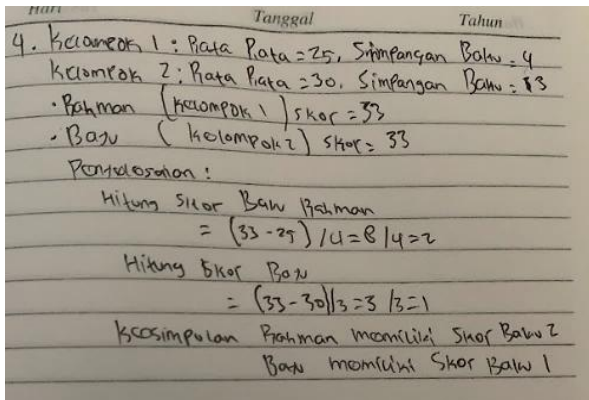 Hari Tanggal Tahun
4. Kelompok 1 : Rata Rata = 25, Simpangan Baku = 4
Kelompok 2 : Rata Rata = 30, Simpangan Baku = 3
• Rahman (Kelompok 1) skor = 33
• Bayu (Kelompok 2) skor = 33
Penyelesaian :
Hitung Skor Baku Rahman
= (33 - 25) / 4 = 8 / 4 = 2
Hitung Skor Bayu
= (33 - 30) / 3 = 3 / 3 = 1
Keesimpulan Rahman memiliki Skor Baku 2
Bayu memiliki Skor Baku 1